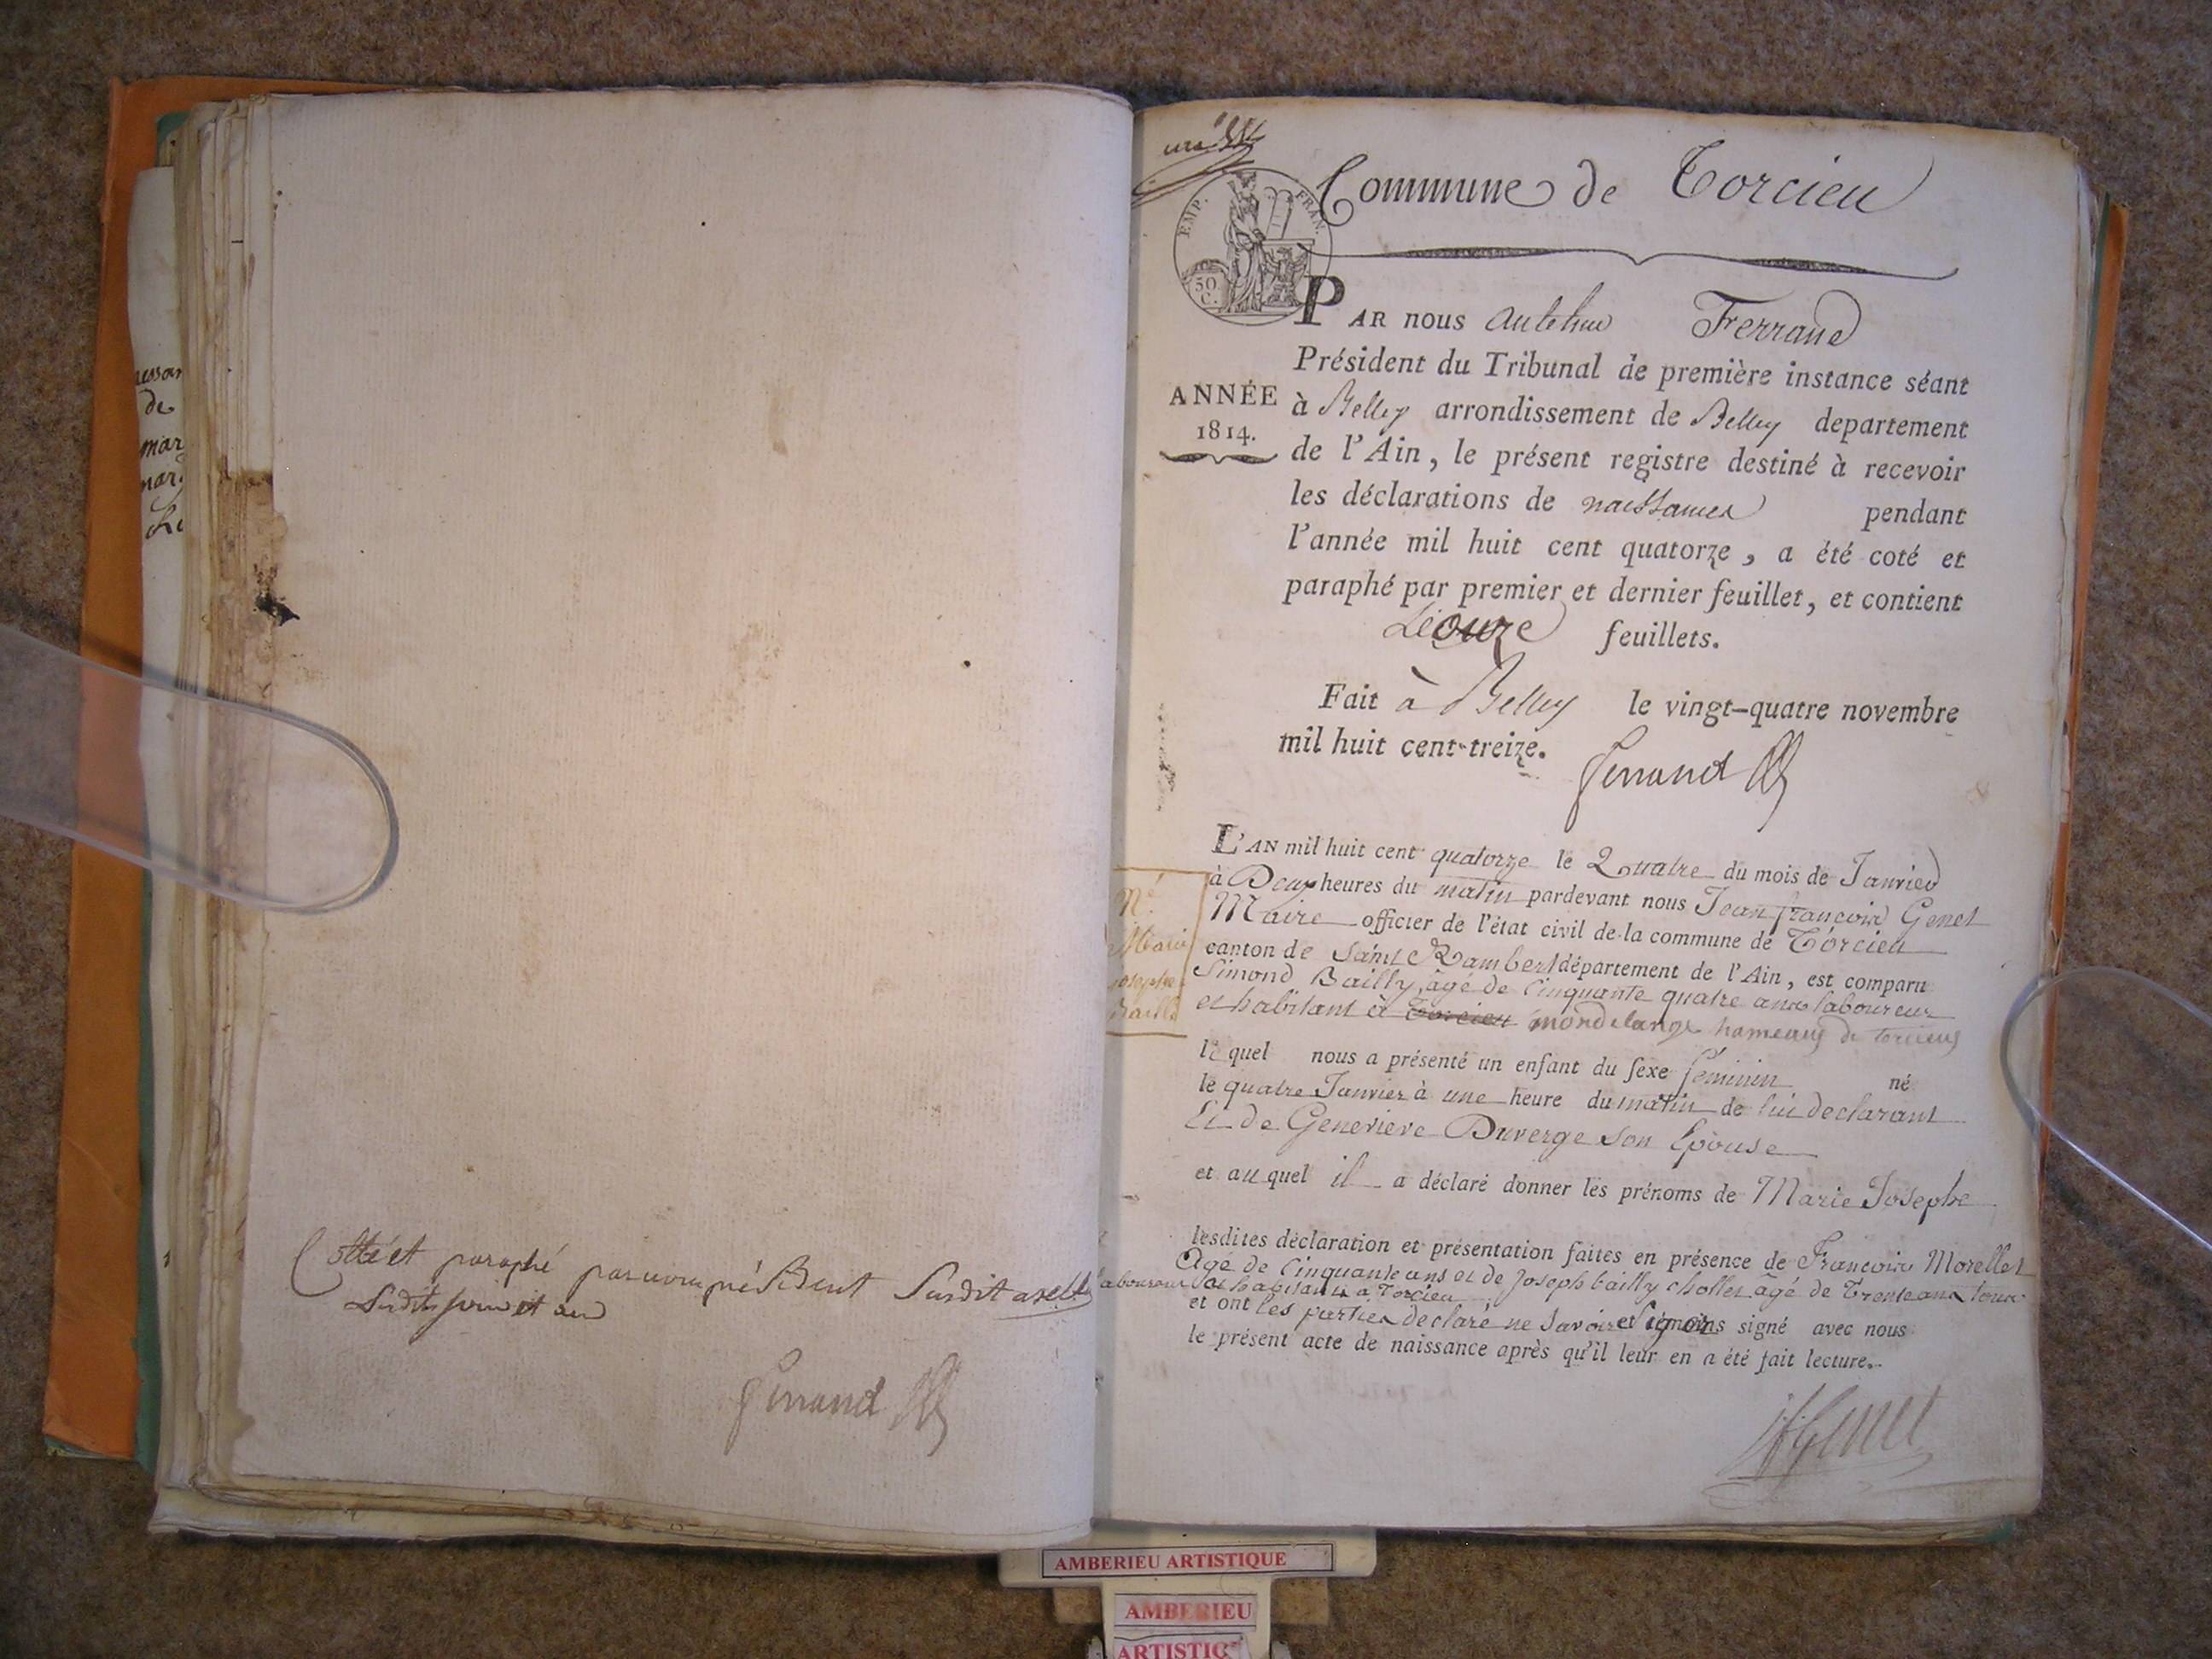 de
mar
Cotté et paraphé par nous président Susdit a Belley
Susdits jour et an
Ferrand
Commune de Torcieu
EMP. FRAN.
50
C.
PAR nous Anthelme Ferrand
Président du Tribunal de première instance séant
ANNÉE
1814.
à Belley arrondissement de Belley departement
de l'Ain, le présent registre destiné à recevoir
les déclarations de naissances pendant
l'année mil huit cent quatorze, a été coté et
paraphé par premier et dernier feuillet, et contient
feuillets.
Fait à Belley le vingt-quatre novembre
mil huit cent-treize.
Ferrand
L'AN mil huit cent quatorze le Quatre du mois de Janvier
à Deux heures du matin pardevant nous Jean françois Genet
Maire officier de l'état civil de la commune de Torcieu
canton de Saint Rambert département de l'Ain, est comparu
Simond Bailly, âgé de Cinquante quatre ans laboureur
et habitant à Torcieu mondelange hameaux de torcieux
Né.
Marie
josephe
Bailli
lequel nous a présenté un enfant du sexe féminin né
le quatre Janvier à une heure du matin de lui declarant
Et de Genevieve Duverge son Epouse
et auquel il a déclaré donner les prénoms de Marie Josephe
lesdites déclaration et présentation faites en présence de François Morellet
Agé de Cinquante ans et de Joseph bailly chollet âgé de Trente ans tous
laboureurs et habitants à Torcieu
et ont les parties declaré ne Savoir Signer et témoins signé avec nous
le présent acte de naissance après qu'il leur en a été fait lecture.
JfGenet
AMBERIEU ARTISTIQUE
AMBERIEU
ARTISTIQ